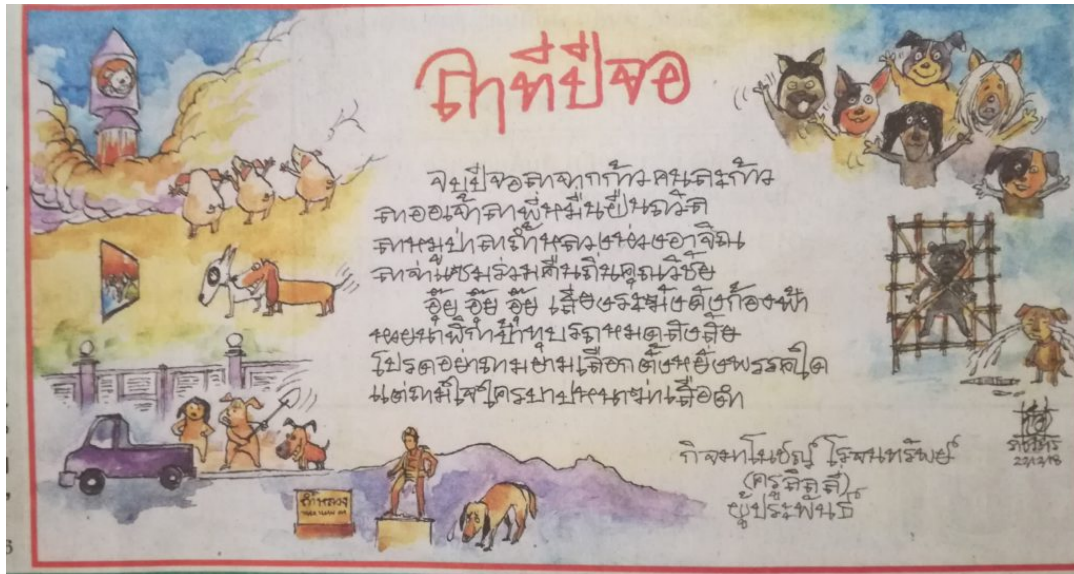 ลาทีปีจอ
จบปีจอลาจากก้าวคนละก้าว
ลาออเจ้าลาพี่หมื่นยืนถวิล
ลาหมูป่าลาถ้ำหลวงห่วงอาจิณ
ลาจ่าแซมร่วมคืนถิ่นคุณวิชัย
อุ๊ย อุ๊ย อุ๊ย เสียงระฆังดังก้องฟ้า
ป้าทุบรถหมดสงสัย
โปรดอย่าถามยามเลือกตั้งหยั่งพรรคใด
แต่ถามใจใครบาปหนาฆ่าเสือดำ
กิจมาโนชญ์ โรจนทรัพย์
(ครูลิลลี่)
ผู้ประพันธ์
ถ้ำหลวง